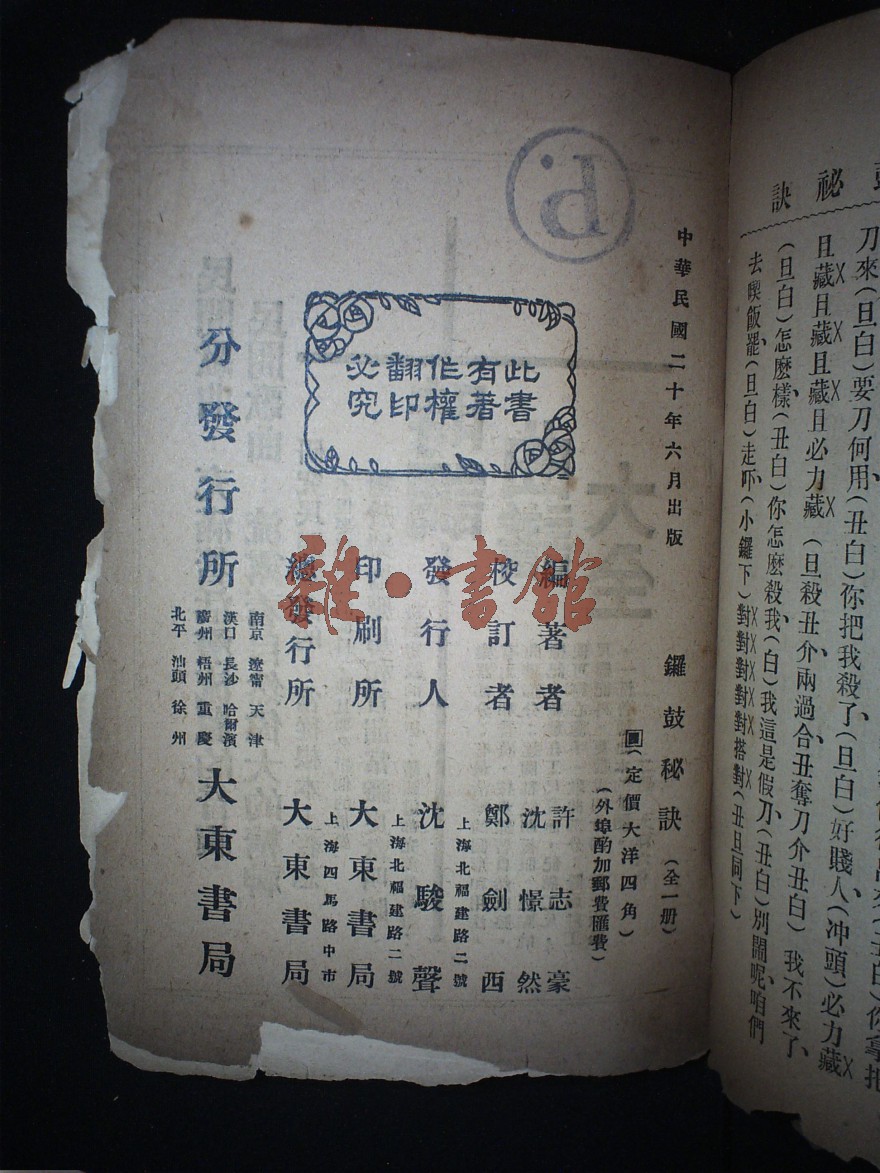 祕訣
刀來(旦白)要刀何用(丑白)你把我殺了(旦白)好賤人(冲頭)必力藏X
且藏X且藏X且藏X且必力藏X(旦殺丑介兩過合丑奪刀介丑白)我不來了
(旦白)怎麽樣(丑白)你怎麽殺我(白)我這是假刀(丑白)別鬧呢咱們
去喫飯罷(旦白)走吓(小鑼下)對X對X對X對X搭對X(丑旦同下)
中華民國二十年六月出版
鑼鼓秘訣(全一册)
(定價大洋四角)
(外埠酌加郵費匯費)
此書
有著
作權
翻印
必究
編著者 許志豪
校訂者 沈憬然
鄭劍西
上海北福建路二號
發行人 沈駿聲
上海北福建路二號
印刷所 大東書局
上海四馬路中市
總發行所 大東書局
分發行所
南京 遼甯 天津
漢口 長沙 哈爾濱
廣州 梧州 重慶
北平 汕頭 徐州
大東書局
雅·書館